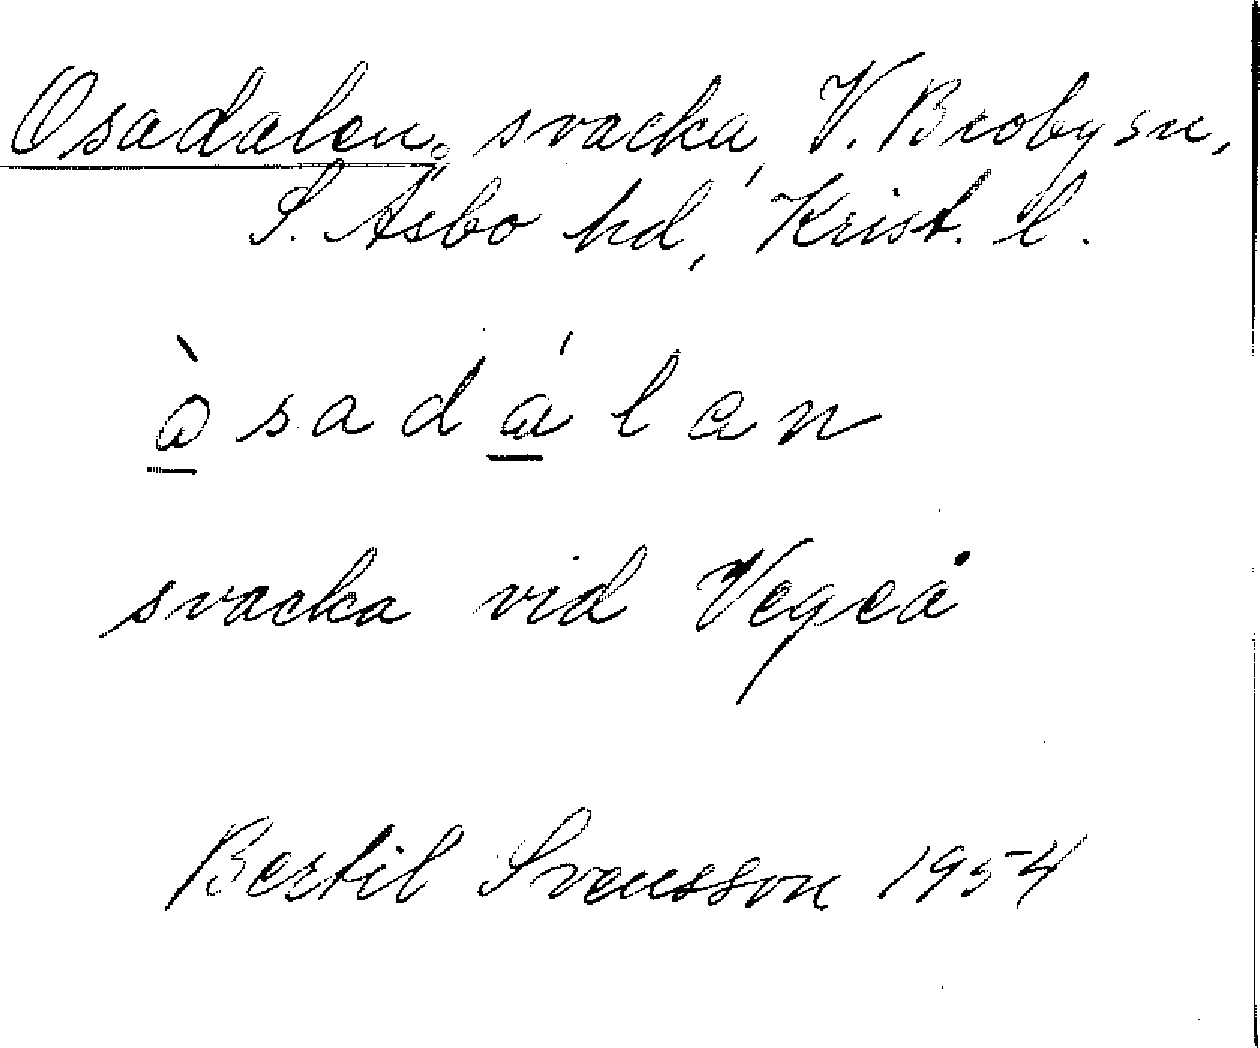 Osadalen, svacka, V. Broby sn,
S. Åsbo hd, Krist. l.
svacka vid Vegeå
Bertil Svensson 1954